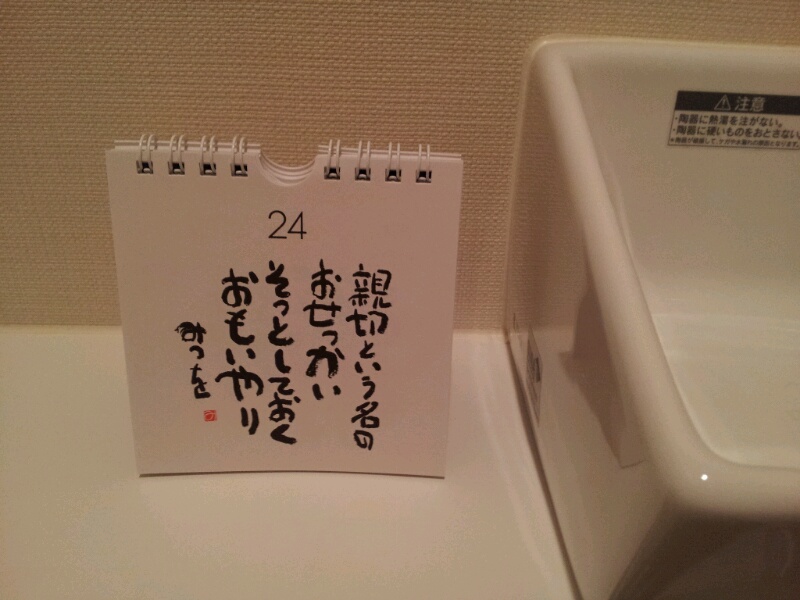 24
親切という名の
おせっかい
そっとしておく
おもいやり
みつを
⚠注意
・陶器に熱湯を注がない。
・陶器に硬いものをおとさない